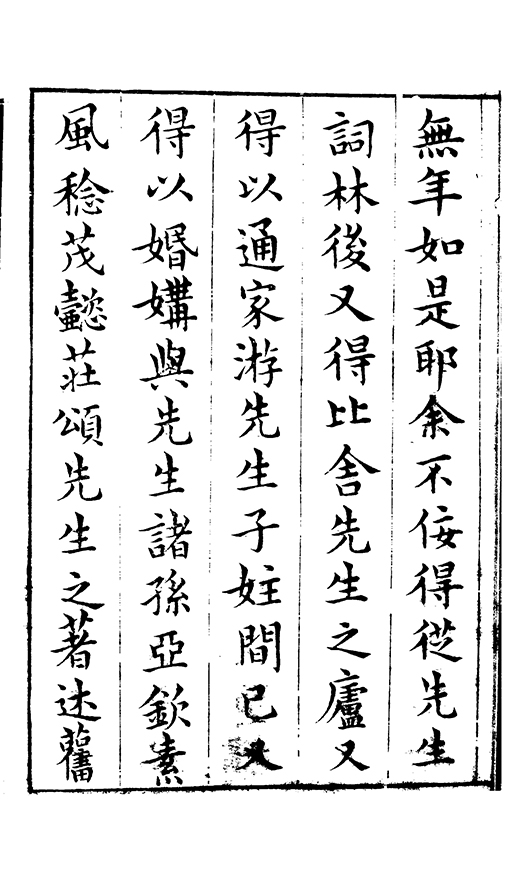 無年如是耶余不佞得從先生
詞林後又得比舎先生之廬又
得以通家游先生子姓間已又
得以婚媾與先生諸孫亞欽素
風稔茂懿莊頌先生之著述舊